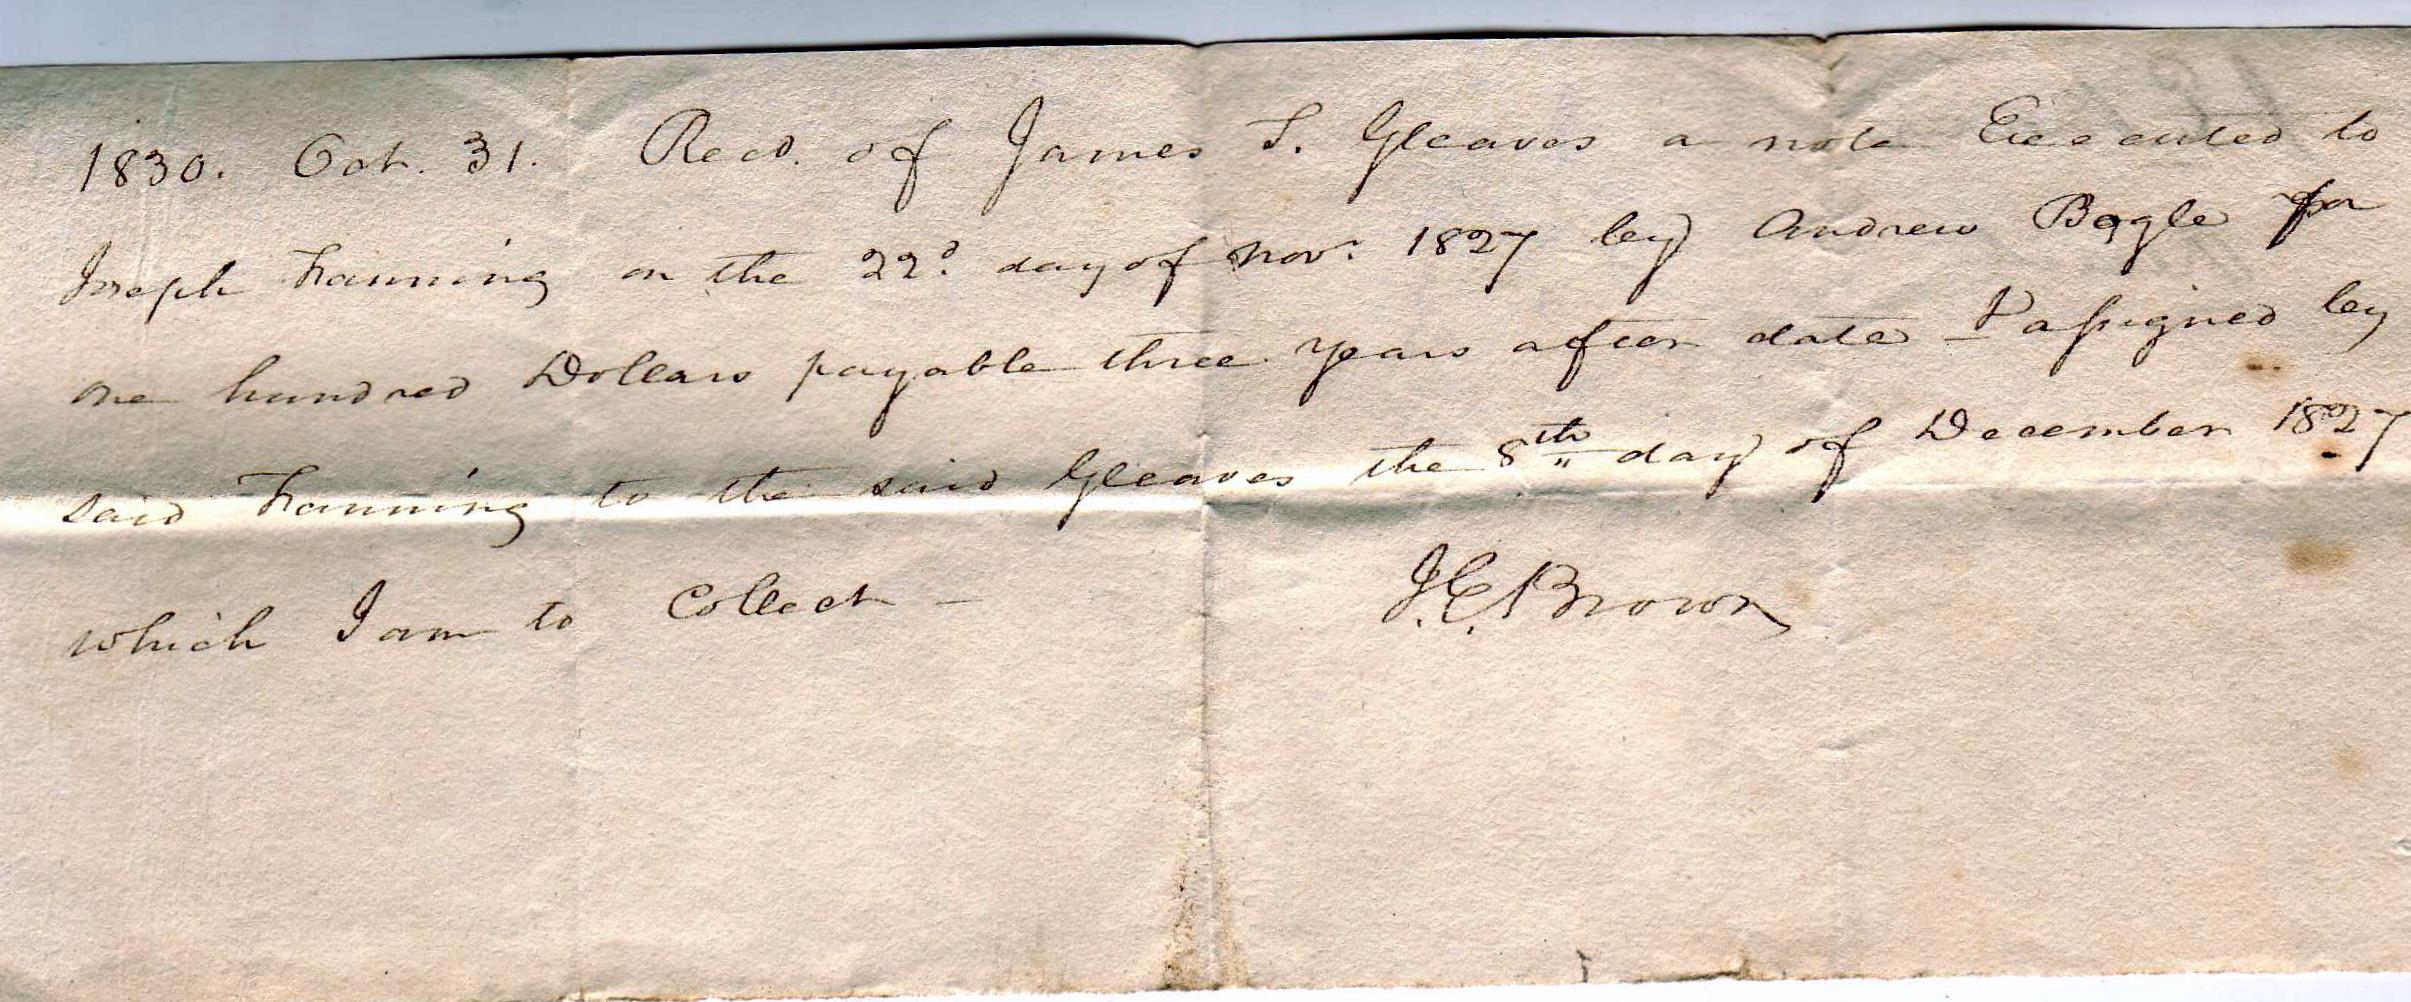 1830. Oct. 31. Recd. of James T. Gleaves a note Executed to
Joseph Fanning on the 22d. day of Nov. 1827 by Andrew Bogle for
one hundred Dollars payable three years after date - & assigned by
said Fanning to the said Gleaves the 8th day of December 1827
which I am to Collect -
J. C. Brown